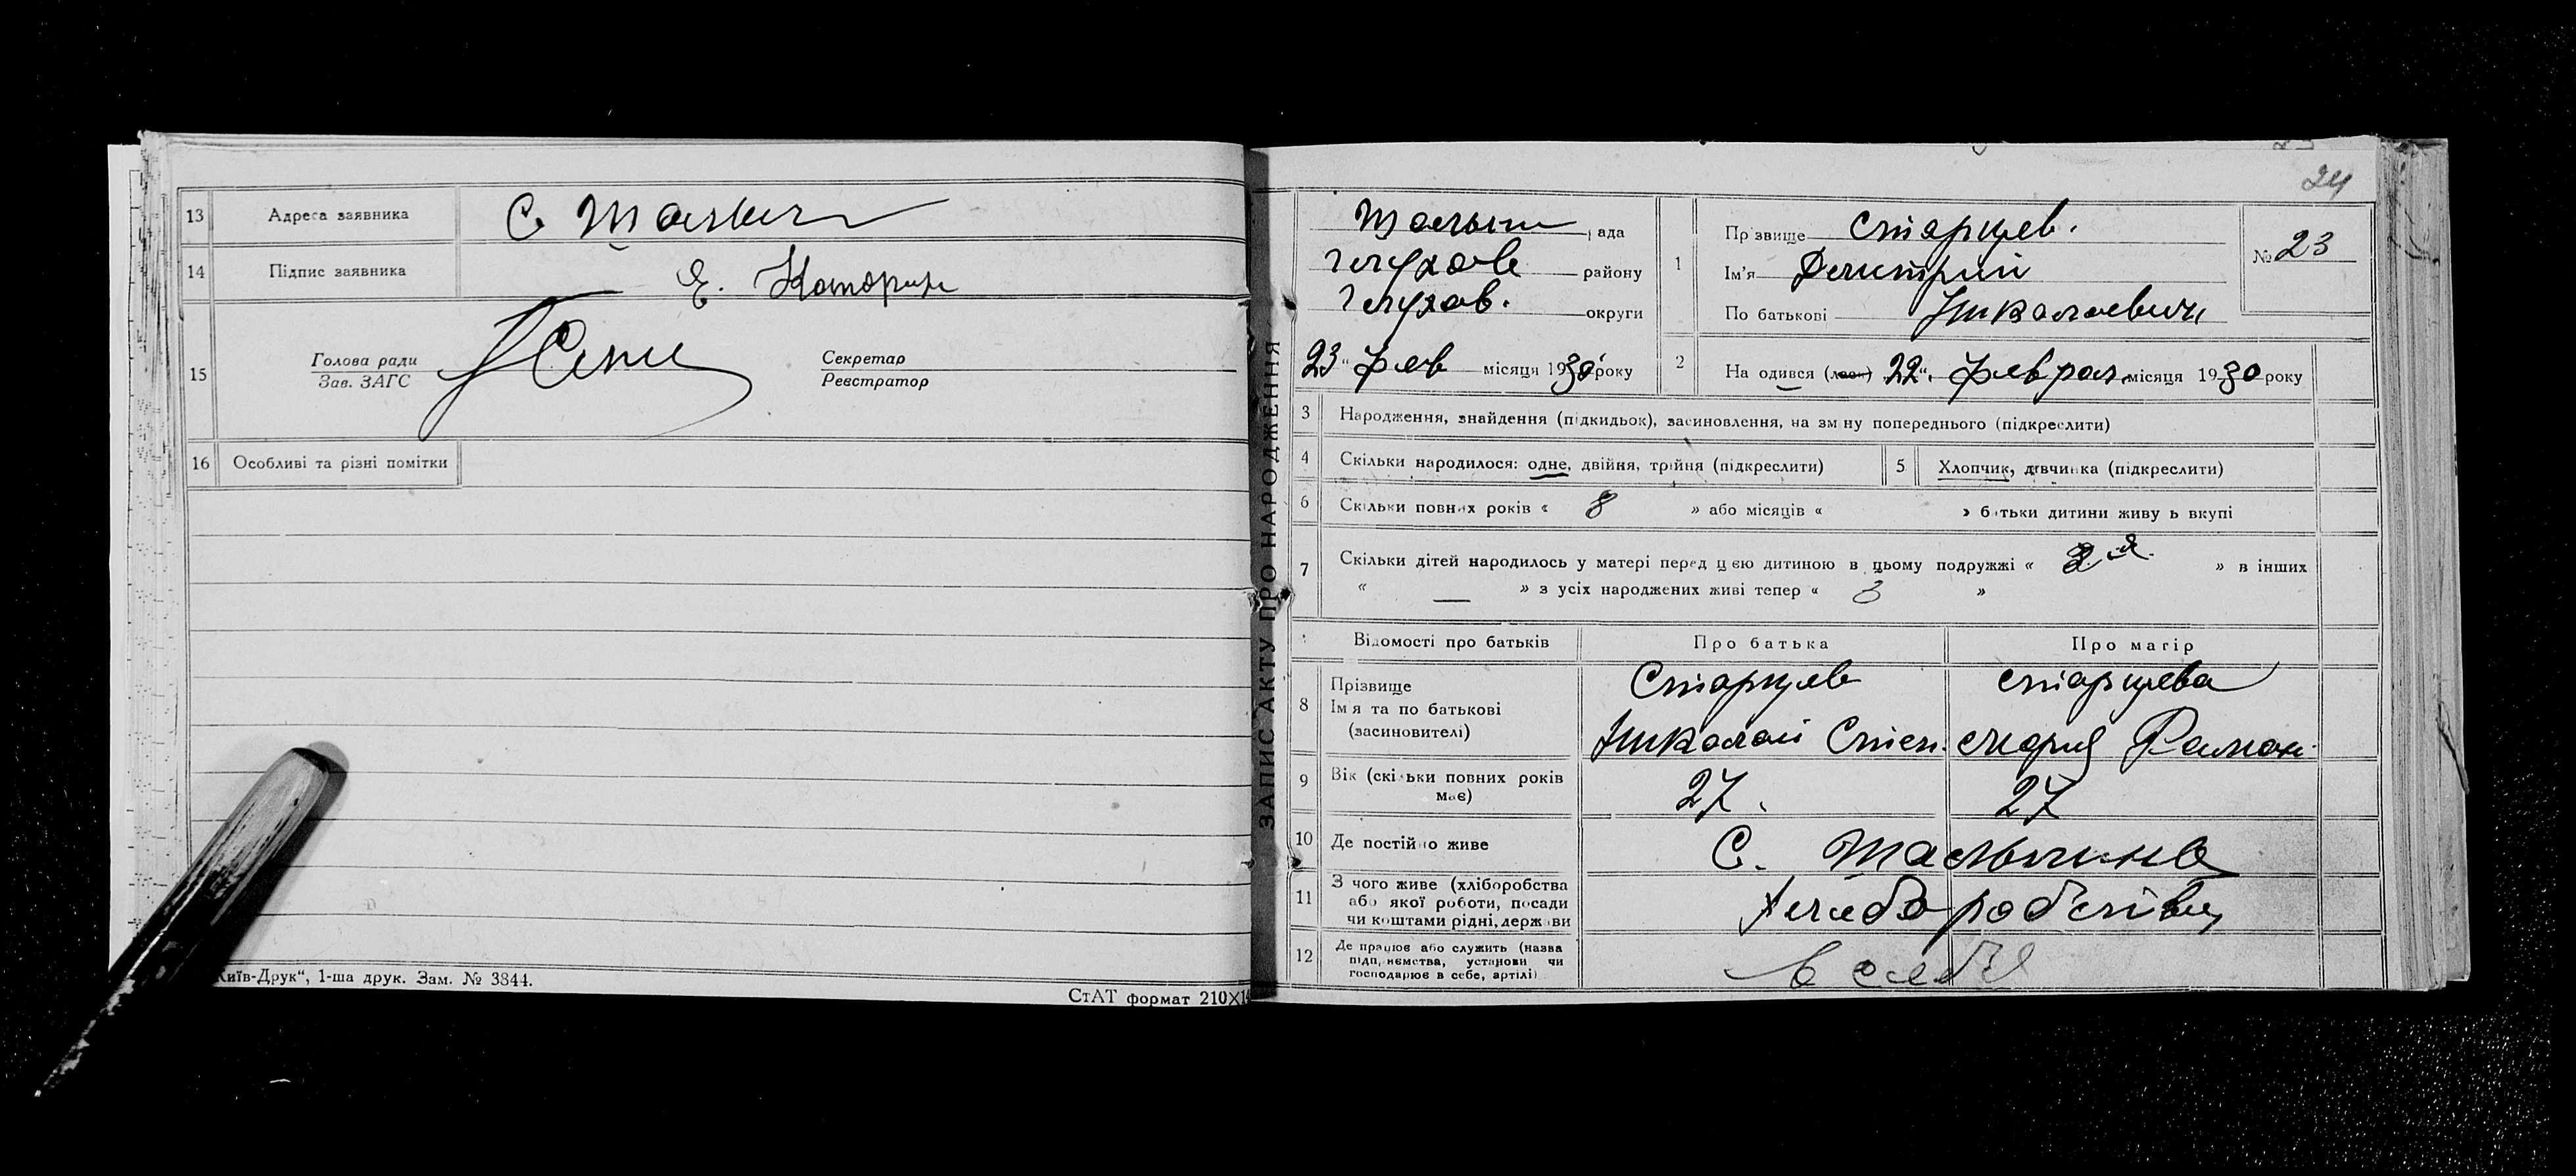 13 Адреса заявника С Толкич
14 Підпис заявника Е.
15 Голова ради Секретар
Зав. ЗАГС Реєстратор
16 Особливі та різні помітки
Київ-Друк", 1-ша друк. Зам. № 3844.
СтАТ формат 210Х1
ЗАПИС АКТУ ПРО НАРОДЖЕННЯ
24
рада
Глухове району
Глухов. округи
23 " фев місяця 1930 року
1 Прізвище Старцев.
Ім'я Дмитрий
По батькові Николаевич
№ 23
2 На одився (лась) 22 " феврал місяця 1930 року
3 Народження, знайдення (підкидьок), засиновлення, на зміну попереднього (підкреслити)
4 Скільки народилося: одне, двійня, трійня (підкреслити) 5 Хлопчик, дівчинка (підкреслити)
6 Скільки повних років « 8 » або місяців « » батьки дитини живу ь вкупі
7 Скільки дітей народилось у матері перед цією дитиною в цьому подружжі « 2-й » в інших
« — » з усіх народжених живі тепер « 3 »
Відомості про батьків Про батька Про матір
8 Прізвище Старцев Старцева
Ім я та по батькові
(засиновителі) Николай Степ. Мария Роман.
9 Вік (скільки повних років має) 27. 27
10 Де постійно живе С.
11 З чого живе (хліборобства
або якої роботи, посади
чи коштами рідні, держави Хлеборобство
12 Де працює або служить (назва
підприємства, установи чи
господарює в себе, артілі) в себе